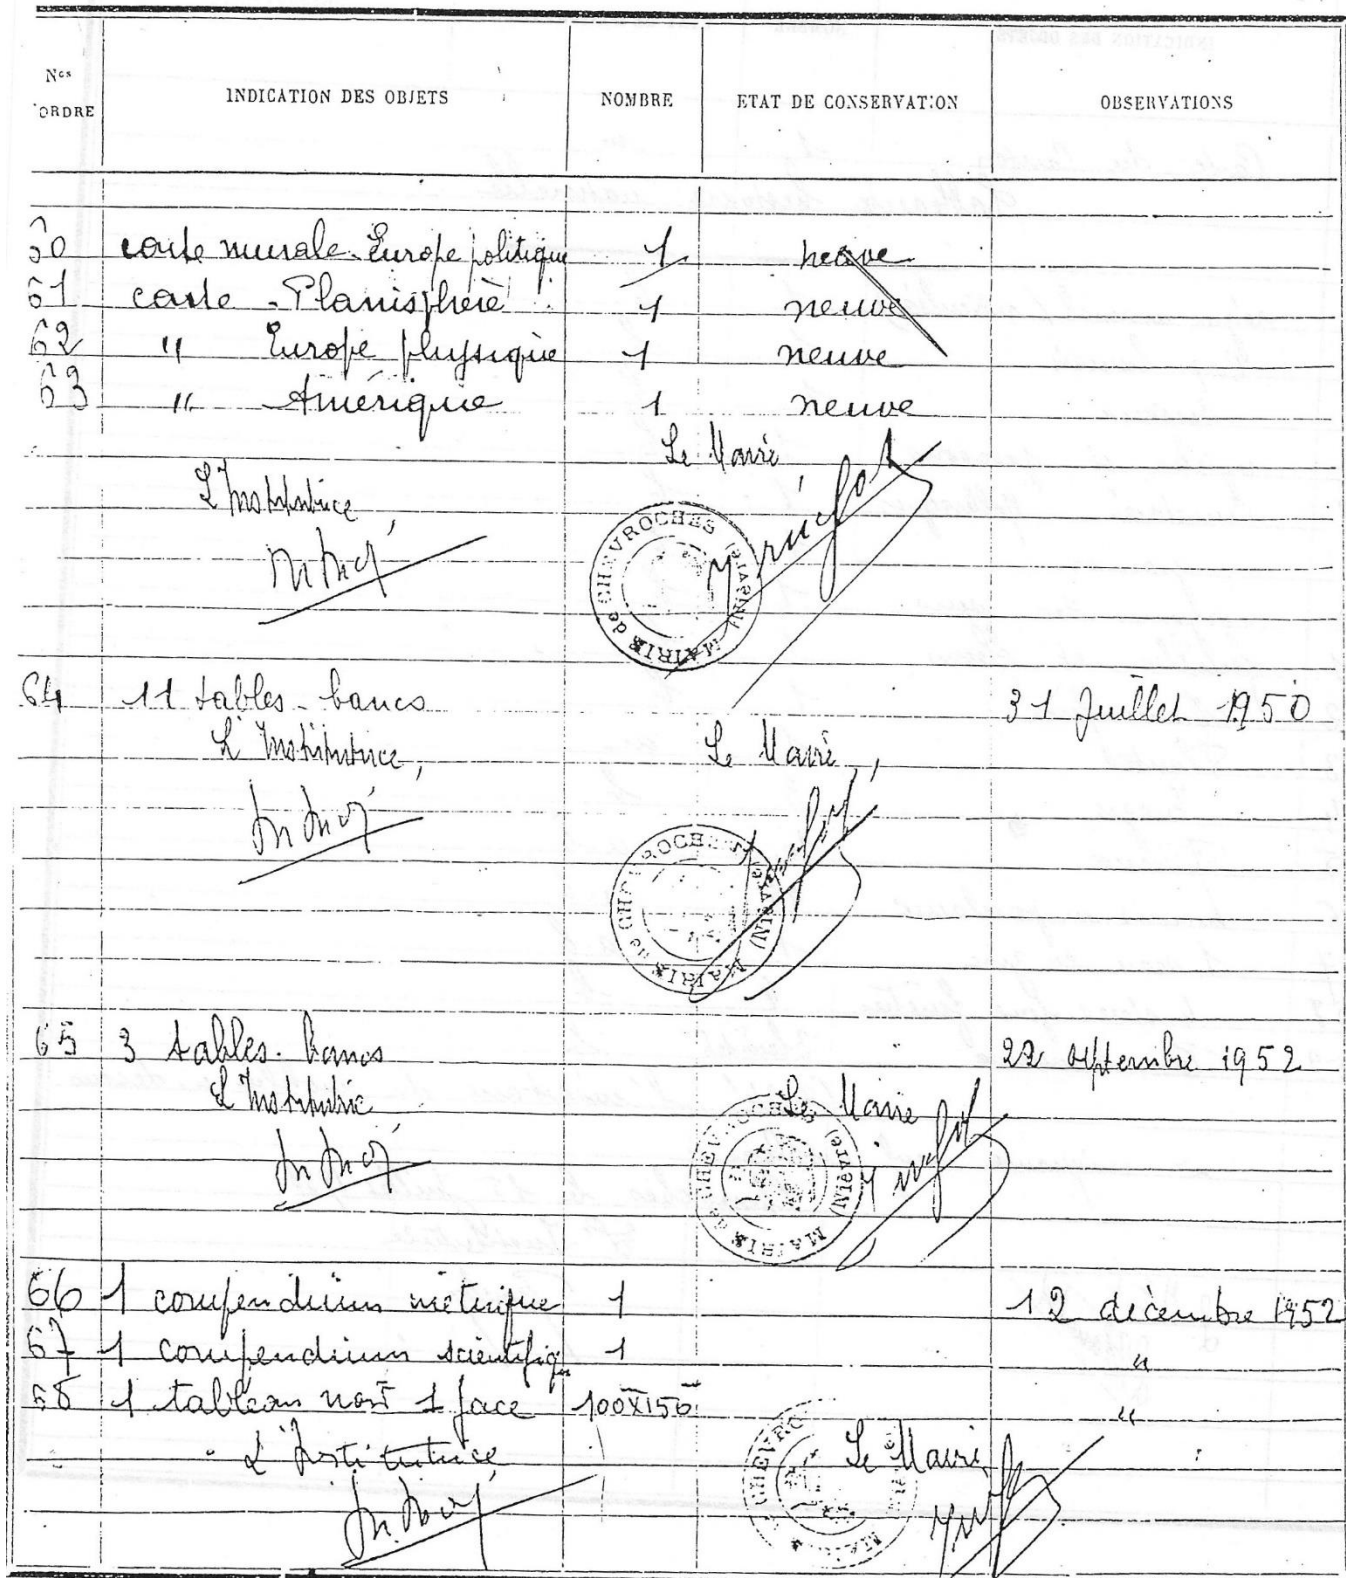 Nos ORDRE INDICATION DES OBJETS NOMBRE ETAT DE CONSERVATION OBSERVATIONS
60 carte murale Europe politique 1 neuve
61 carte - Planisphère 1 neuve
62 " Europe physique 1 neuve
63 " Amérique 1 neuve
Le Maire
L'Institutrice,
MAIRIE de CHEVROCHES (NIÈVRE)
64 11 tables-bancs 31 Juillet 1950
L'Institutrice, Le Maire,
MAIRIE de CHEVROCHES (NIÈVRE)
65 3 tables-bancs 22 septembre 1952
L'Institutrice Le Maire
MAIRIE de CHEVROCHES (NIÈVRE)
66 1 compendium métrique 1 12 décembre 1952
67 1 compendium scientifique 1 "
68 1 tableau noir 1 face 100x150 "
L'Institutrice Le Maire